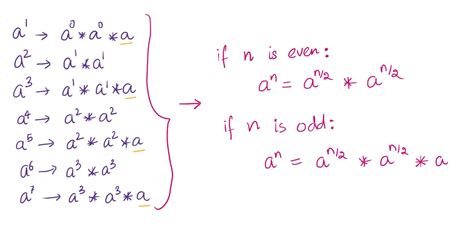 a¹ → a⁰ * a⁰ * a
a² → a¹ * a¹
a³ → a¹ * a¹ * a
a⁴ → a² * a²
a⁵ → a² * a² * a
a⁶ → a³ * a³
a⁷ → a³ * a³ * a
→
if n is even:
aⁿ = a^n/2 * a^n/2
if n is odd:
aⁿ = a^n/2 * a^n/2 * a